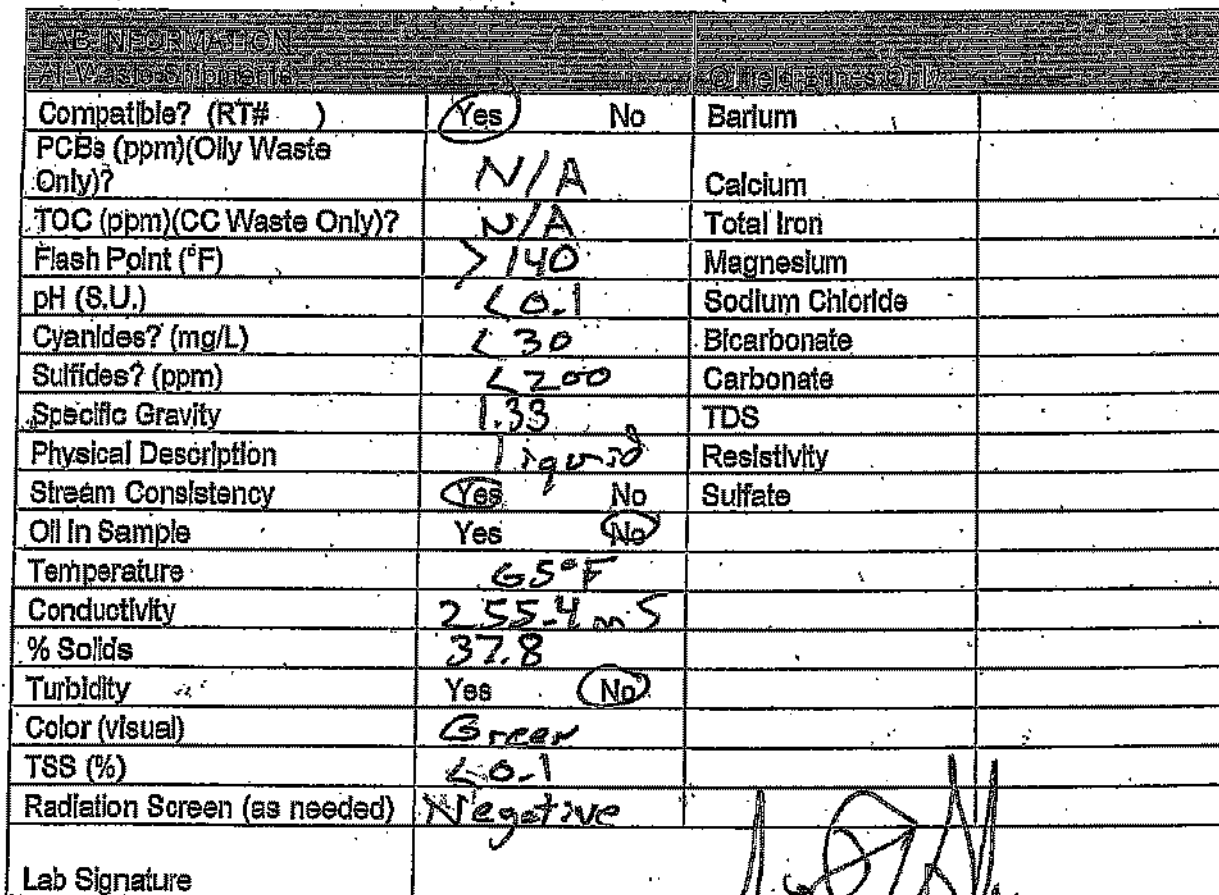 LAB INFORMATION
All Waste Shipments Oilfield Brines Only
Compatible? (RT# ) Yes No Barium
PCBs (ppm)(Oily Waste
Only)? N/A Calcium
TOC (ppm)(CC Waste Only)? N/A Total Iron
Flash Point (°F) >140 Magnesium
pH (S.U.) <0.1 Sodium Chloride
Cyanides? (mg/L) <30 Bicarbonate
Sulfides? (ppm) <200 Carbonate
Specific Gravity 1.33 TDS
Physical Description liquid Resistivity
Stream Consistency Yes No Sulfate
Oil in Sample Yes No
Temperature 65°F
Conductivity 255.4 mS
% Solids 37.8
Turbidity Yes No
Color (visual) Green
TSS (%) <0.1
Radiation Screen (as needed) Negative
Lab Signature